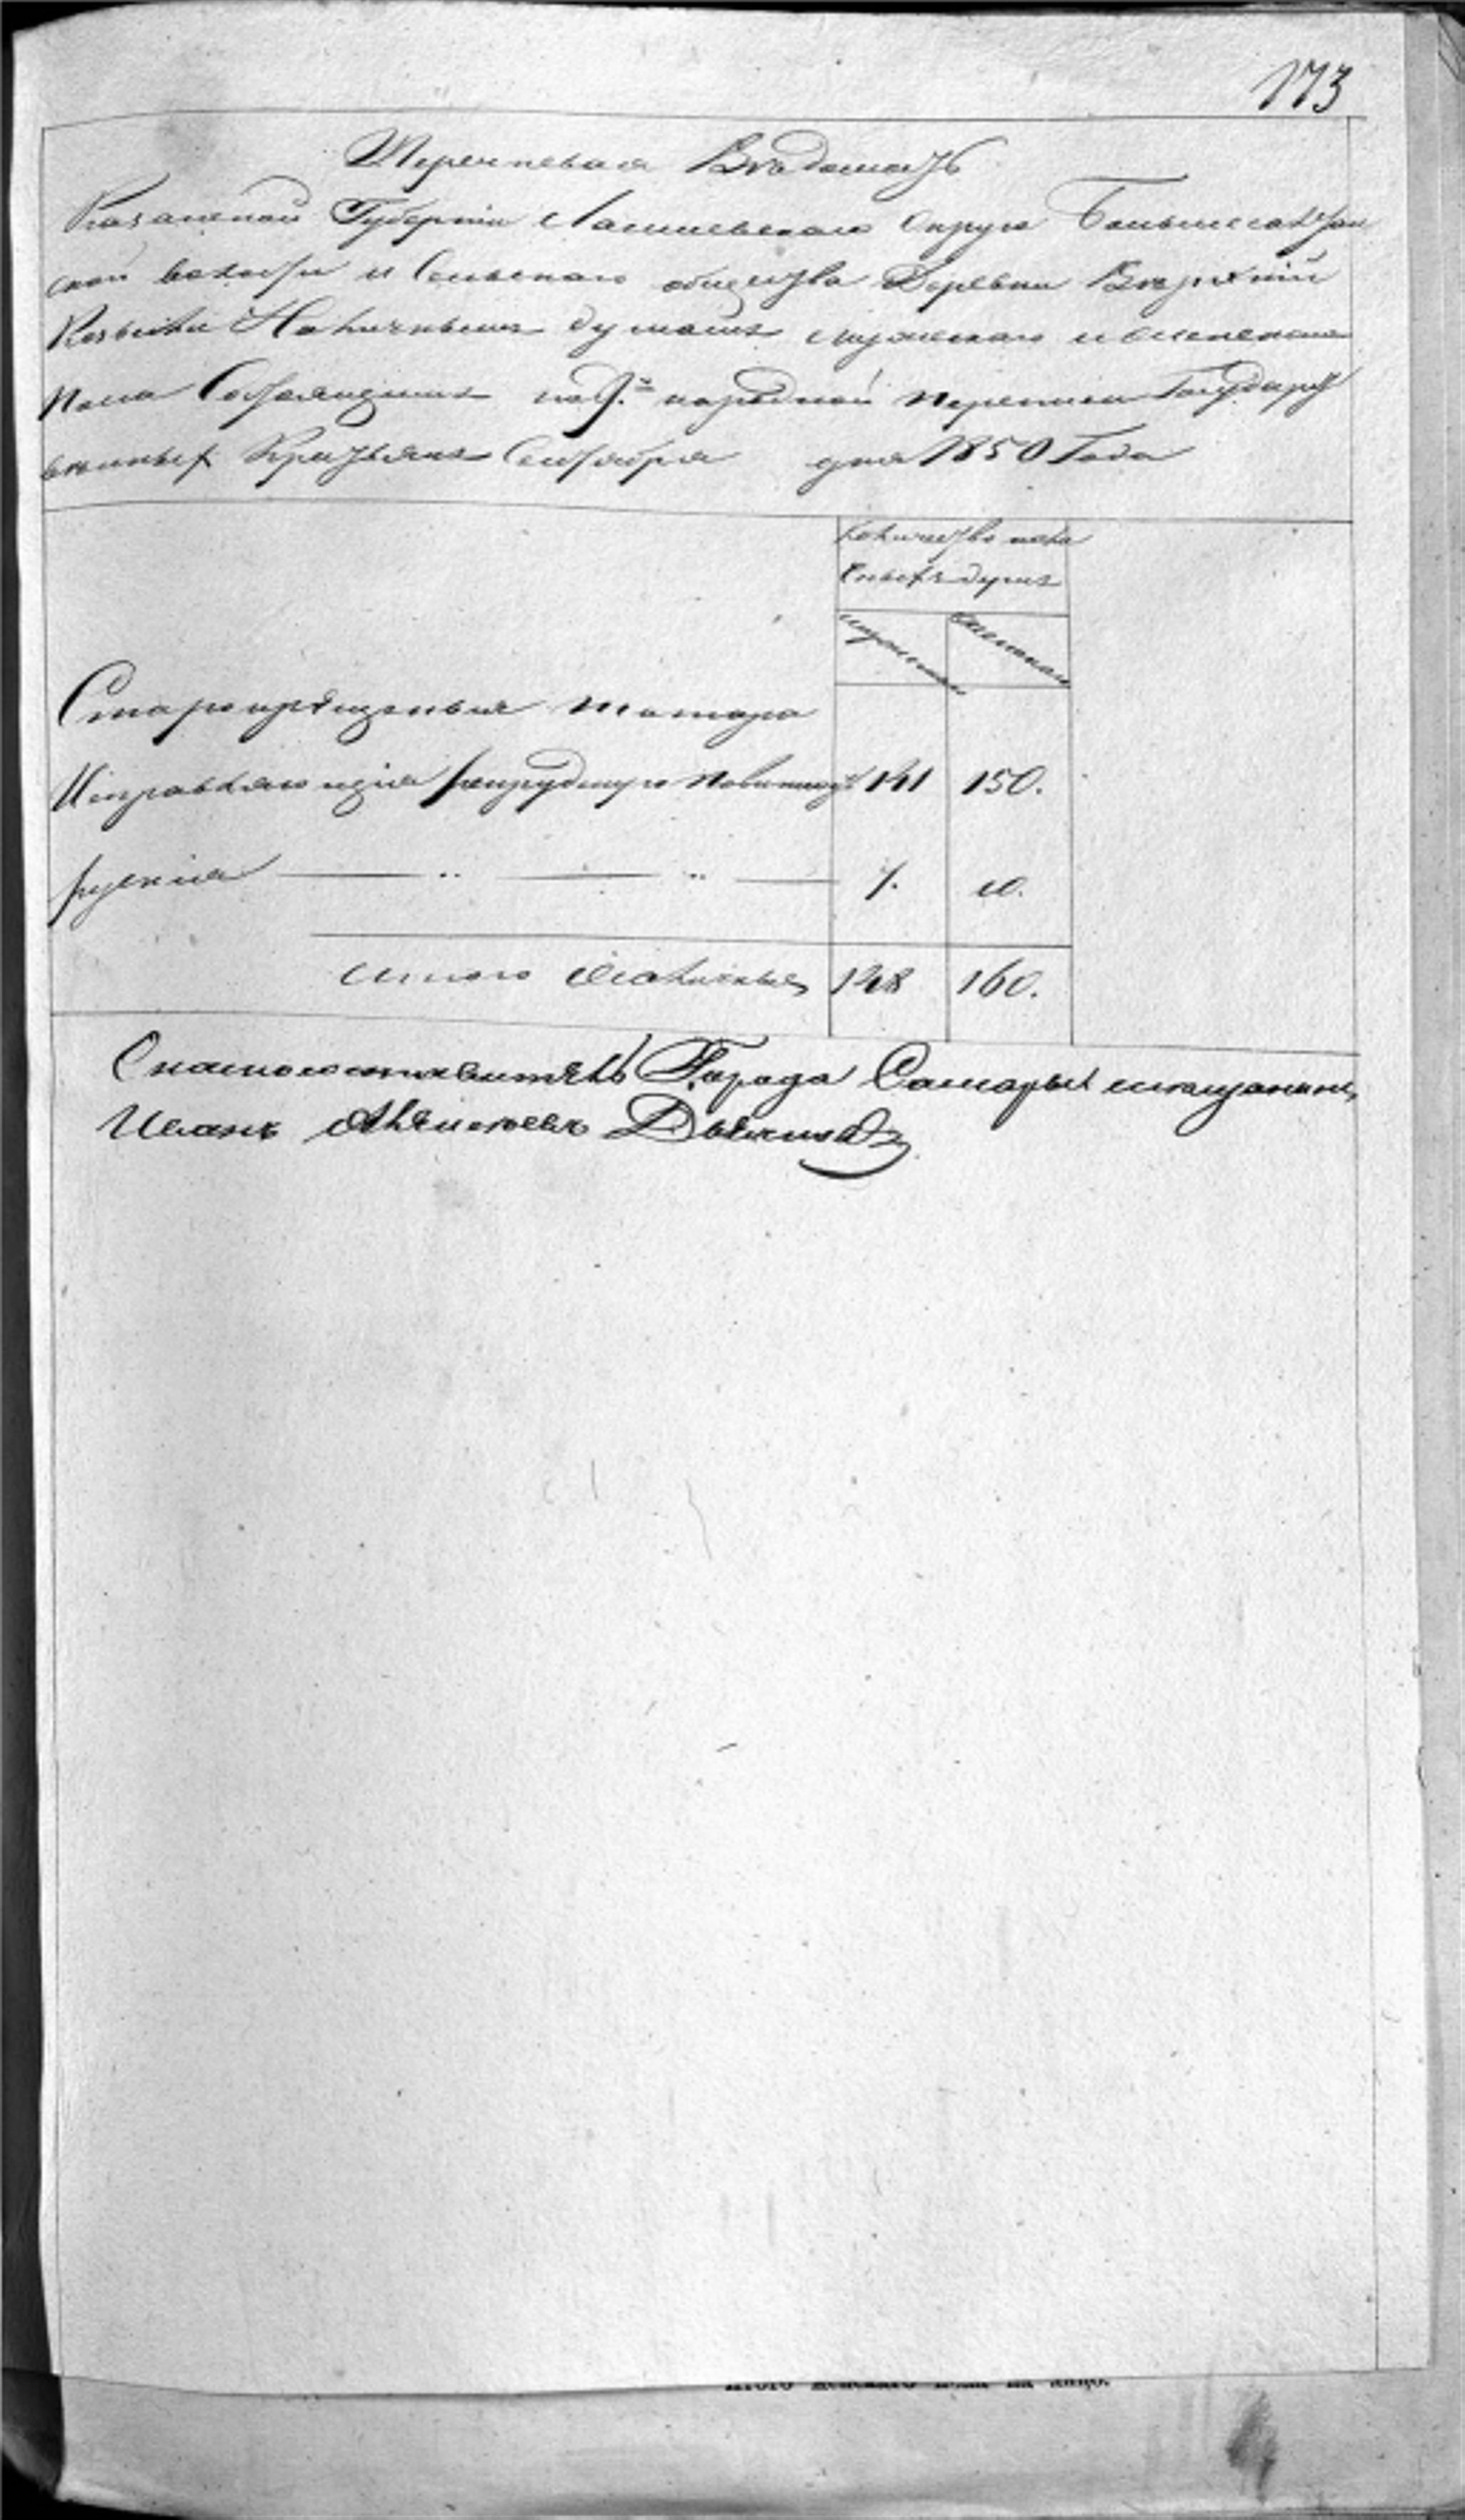 173
Перечневая Вѣдомость
Казанской Губерніи Лаишевскаго округа Большесавруш
ской волости и Сельскаго общества Деревни Верхній
Наличнымъ душамъ мужескаго и женскаго
пола Состоящимъ по 9.й народной переписи Государст
венныхъ Крестьянъ Сентября дня 1850 Года
Количество нали
ныхъ душъ
мужескаго женскаго
Старокрещеныя татара
Исправляющія рекрудскую повинность 141 150.
русскія 7. 10.
итого наличныхъ 148 160.
Города Самары мещанинъ
Иванъ